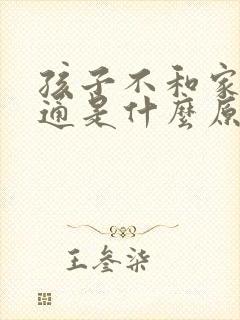 孩子不和家
通是什麼原
王叁柒